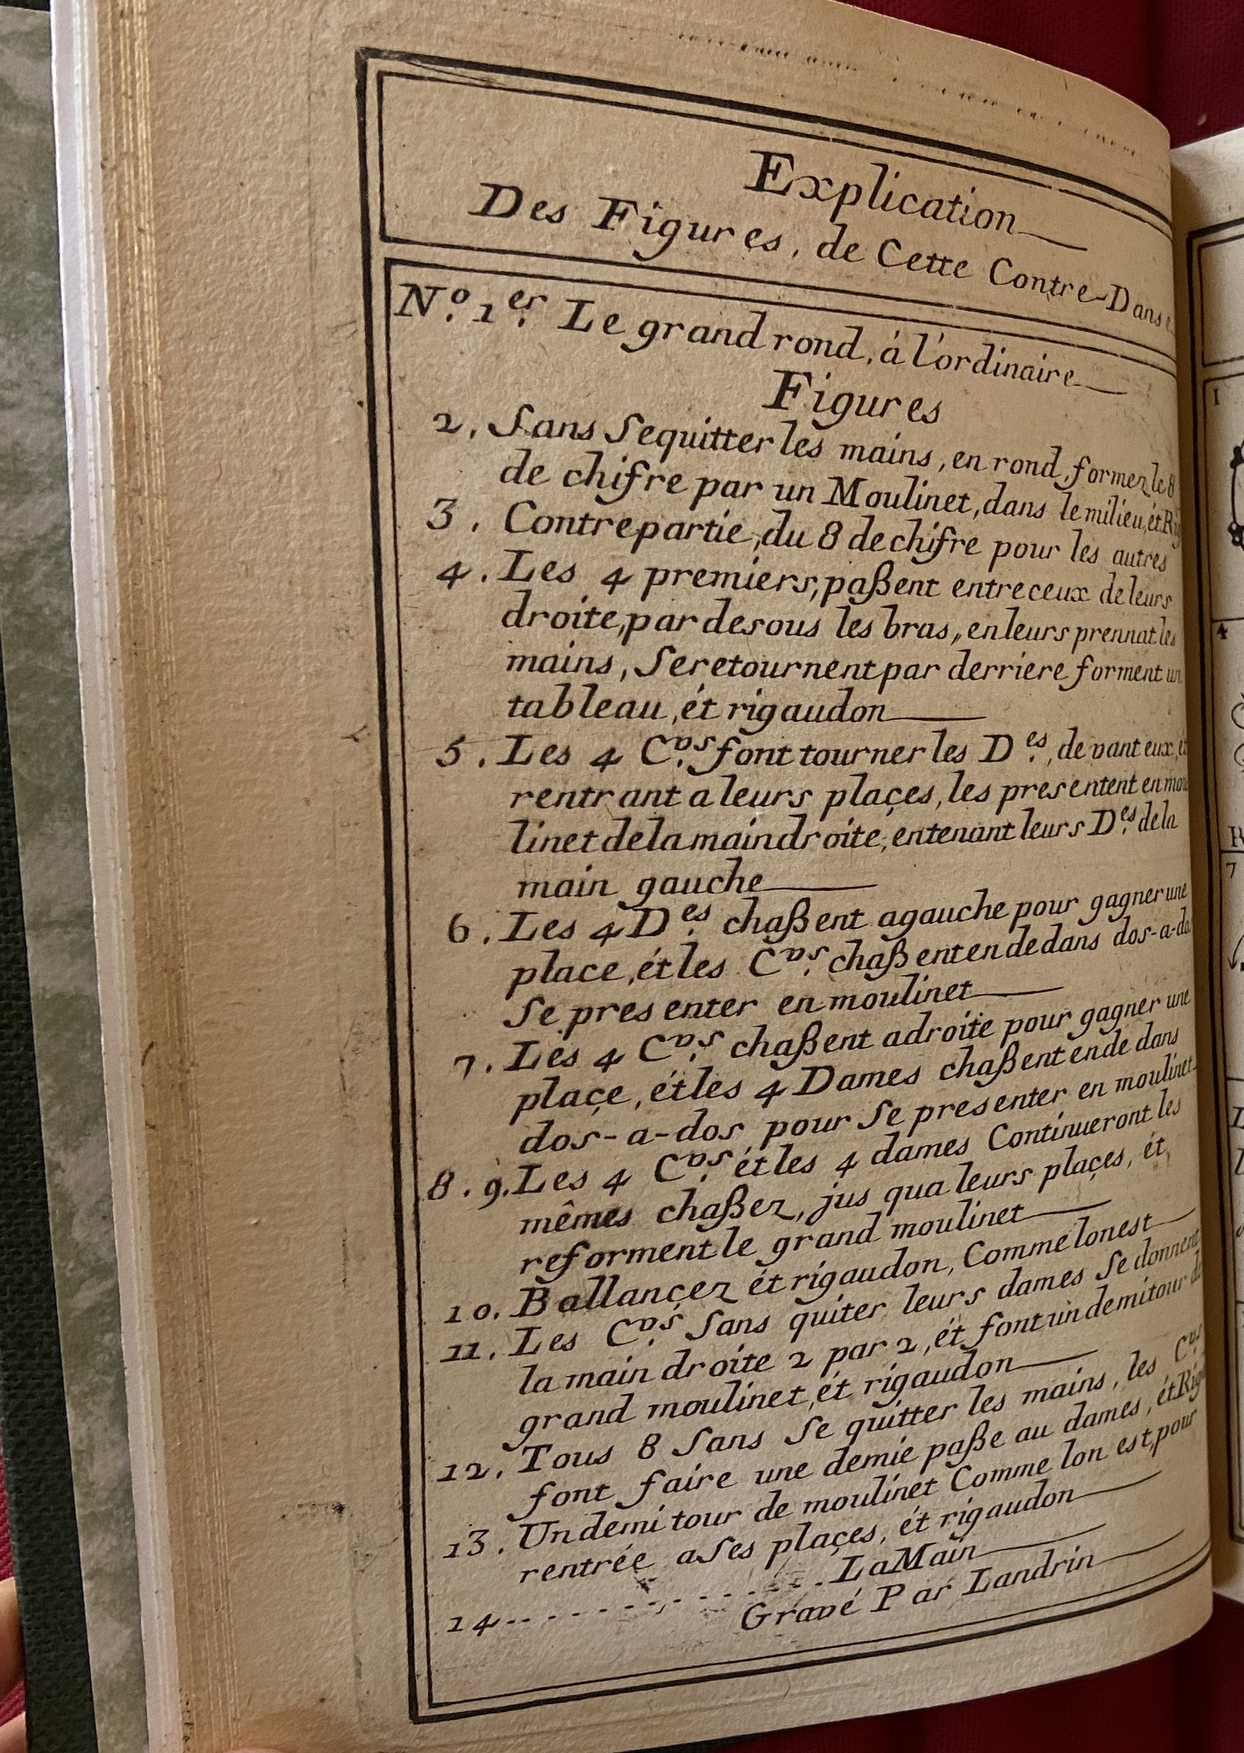 Explication
Des Figures, de Cette Contre-Danse
N.º 1.er Le grand rond, á l'ordinaire
Figures
2. Sans Sequitter les mains, en rond, formez le 8
de chifre par un Moulinet, dans le milieu, ét
3. Contrepartie, du 8 de chifre pour les autres
4. Les 4 premiers, paßent entre ceux de leurs
droite, par desous les bras, en leurs prennat les
mains, Se retournent par derriere forment un
tableau, ét rigaudon
5. Les 4 C.vrs font tourner les D.es, de vant eux,
rentrant a leurs plaçes, les presentent en mou
linet de la main droite, en tenant leurs D.es de la
main gauche
6. Les 4 D.es chaßent a gauche pour gagner une
place, ét les C.vrs chaßent en de dans dos-a-dos
Se presenter en moulinet
7. Les 4 C.vrs chaßent a droite pour gagner une
plaçe, ét les 4 Dames chaßent en de dans
dos-a-dos pour Se presenter en moulinet
8. 9. Les 4 C.vrs ét les 4 dames Continueront les
mêmes chaßez, jus qua leurs plaçes, ét
reforment le grand moulinet
10. Ballançez ét rigaudon, Comme lon est
11. Les C.vrs Sans quiter leurs dames Se donnent
la main droite 2 par 2, ét font un demi tour de
grand moulinet, ét rigaudon
12. Tous 8 Sans Se quitter les mains, les C.vrs
font faire une demie paße au dames, ét
13. Un demi tour de moulinet Comme lon est, pour
rentrée a Ses plaçes, ét rigaudon
14 - - - - - - - - - - - - La Main
Gravé Par Landrin
1
4
R
7